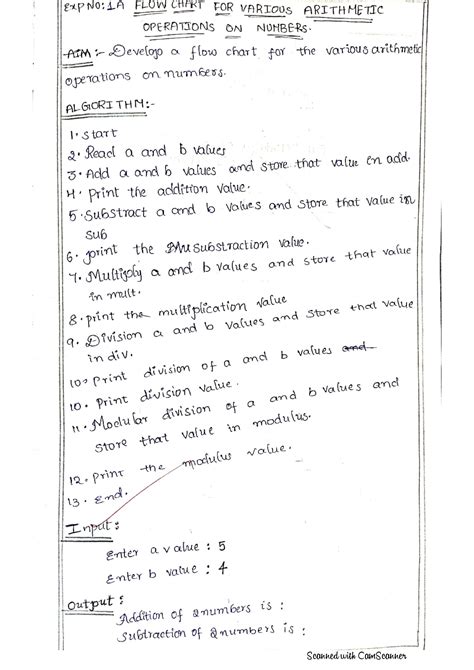 Exp NO: 1A FLOW CHART FOR VARIOUS ARITHMETIC
OPERATIONS ON NUMBERS.
AIM :- Develop a flow chart for the various arithmetic
operations on numbers.
ALGORITHM:-
1. Start
2. Read a and b values
3. Add a and b values and store that value in add.
4. Print the addition value.
5. Substract a and b values and store that value in
sub
6. print the substraction value.
7. Multiply a and b values and store that value
in mult.
8. print the multiplication value
9. Division a and b values and store that value
in div.
10. Print division of a and b values and
10. Print division value.
11. Modular division of a and b values and
store that value in modulus.
12. Print the modulus value.
13. End.
Input :
Enter a value : 5
Enter b value : 4
Output :
Addition of 2numbers is :
Subtraction of 2numbers is :
Scanned with CamScanner